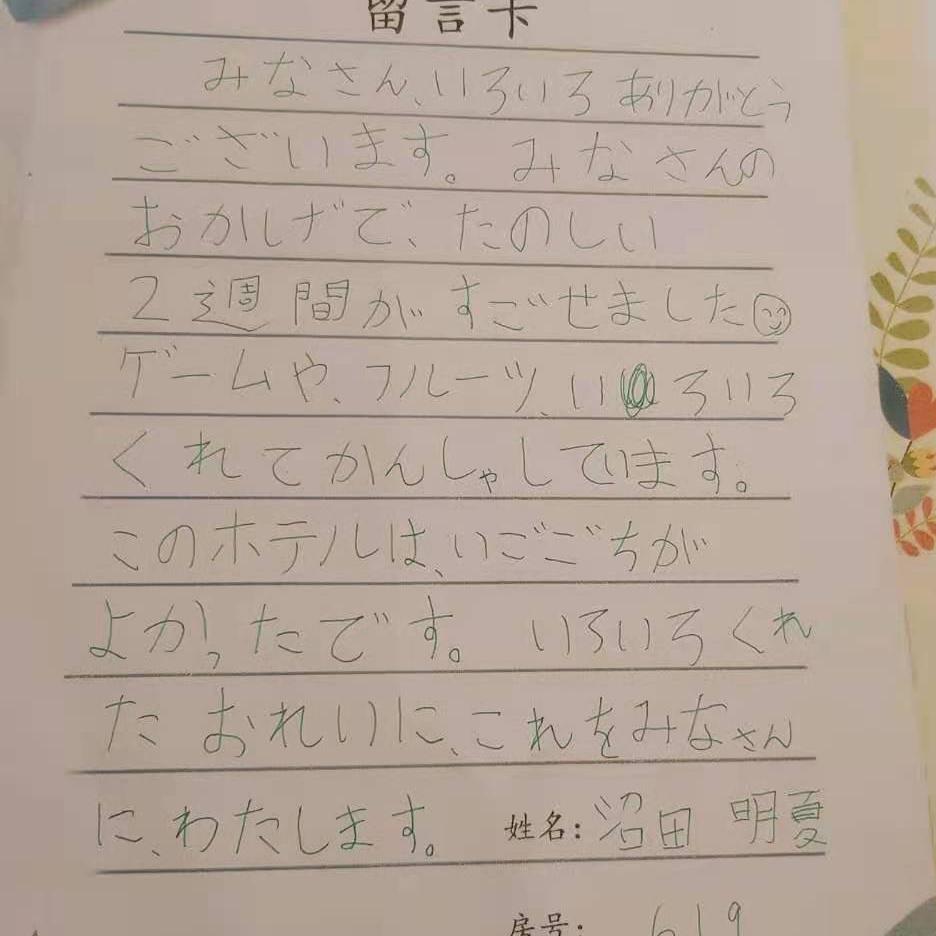 留言卡
みなさん、いろいろありがとう
ございます。みなさんの
おかげで、たのしい
2週間がすごせました
ゲームや、フルーツ、いろいろ
くれてかんしゃしています。
このホテルは、いごごちが
よかったです。いろいろくれ
たおれいに、これをみなさん
に、わたします。 姓名:沼田 明夏
房号: 619